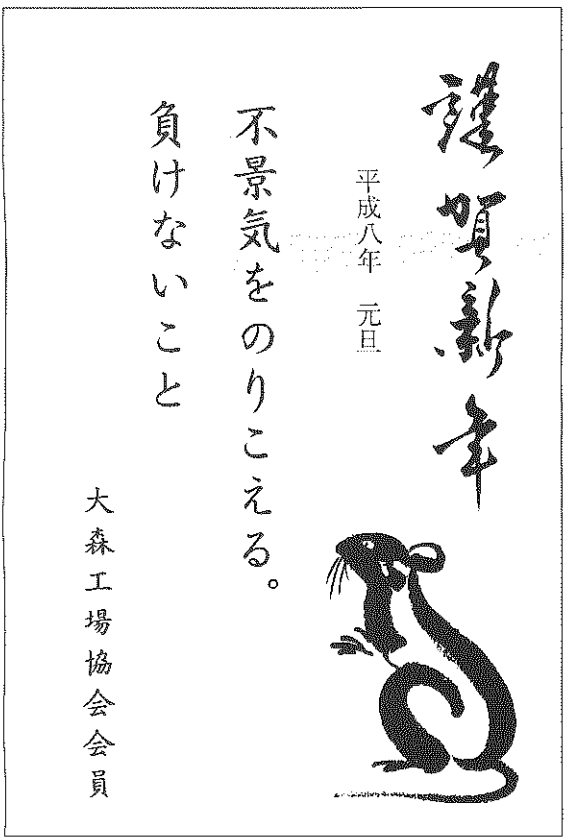 謹賀新年
平成八年　元旦
不景気をのりこえる。
負けないこと
大森工場協会会員